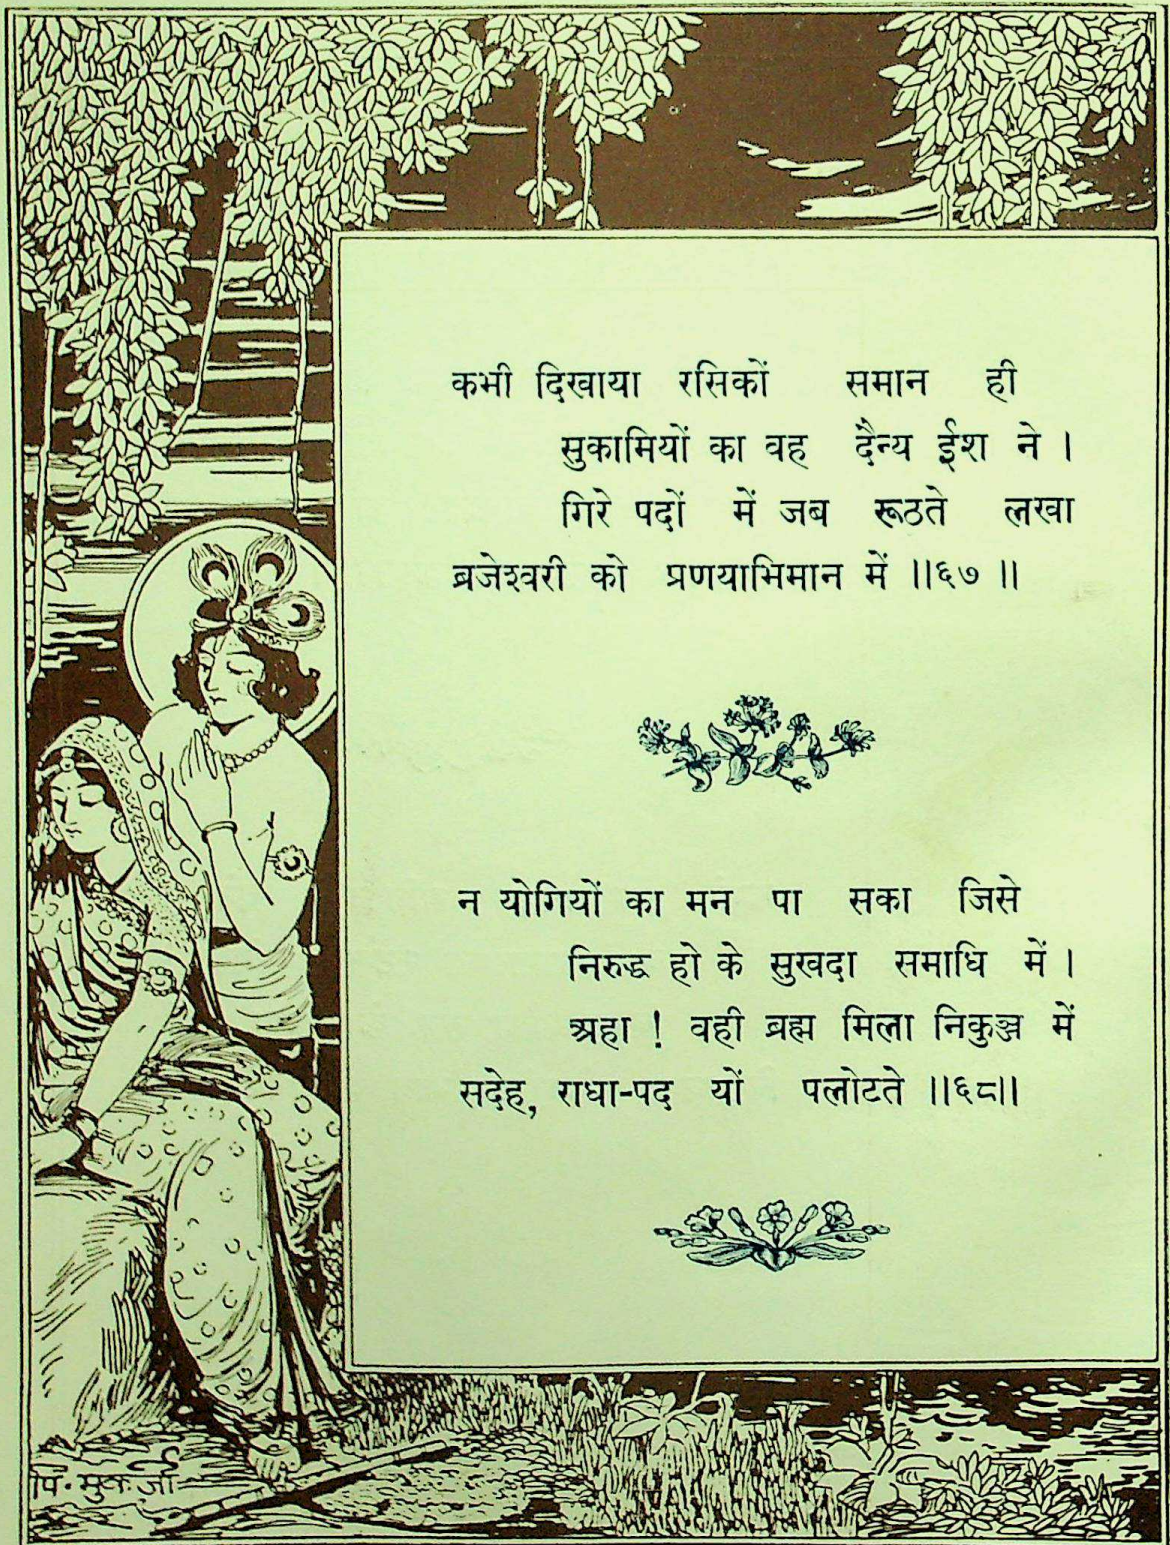 कभी दिखाया रसिकों समान ही
सुकामियों का वह दैन्य ईश ने ।
गिरे पदों में जब रूठते लखा
ब्रजेश्वरी को प्रणयाभिमान में ॥६७ ॥
न योगियों का मन पा सका जिसे
निरुद्ध हो के सुखदा समाधि में ।
अहा ! वही ब्रह्म मिला निकुञ्ज में
सदेह, राधा-पद यों पलोटते ॥६८॥
पि. मुकर्जी